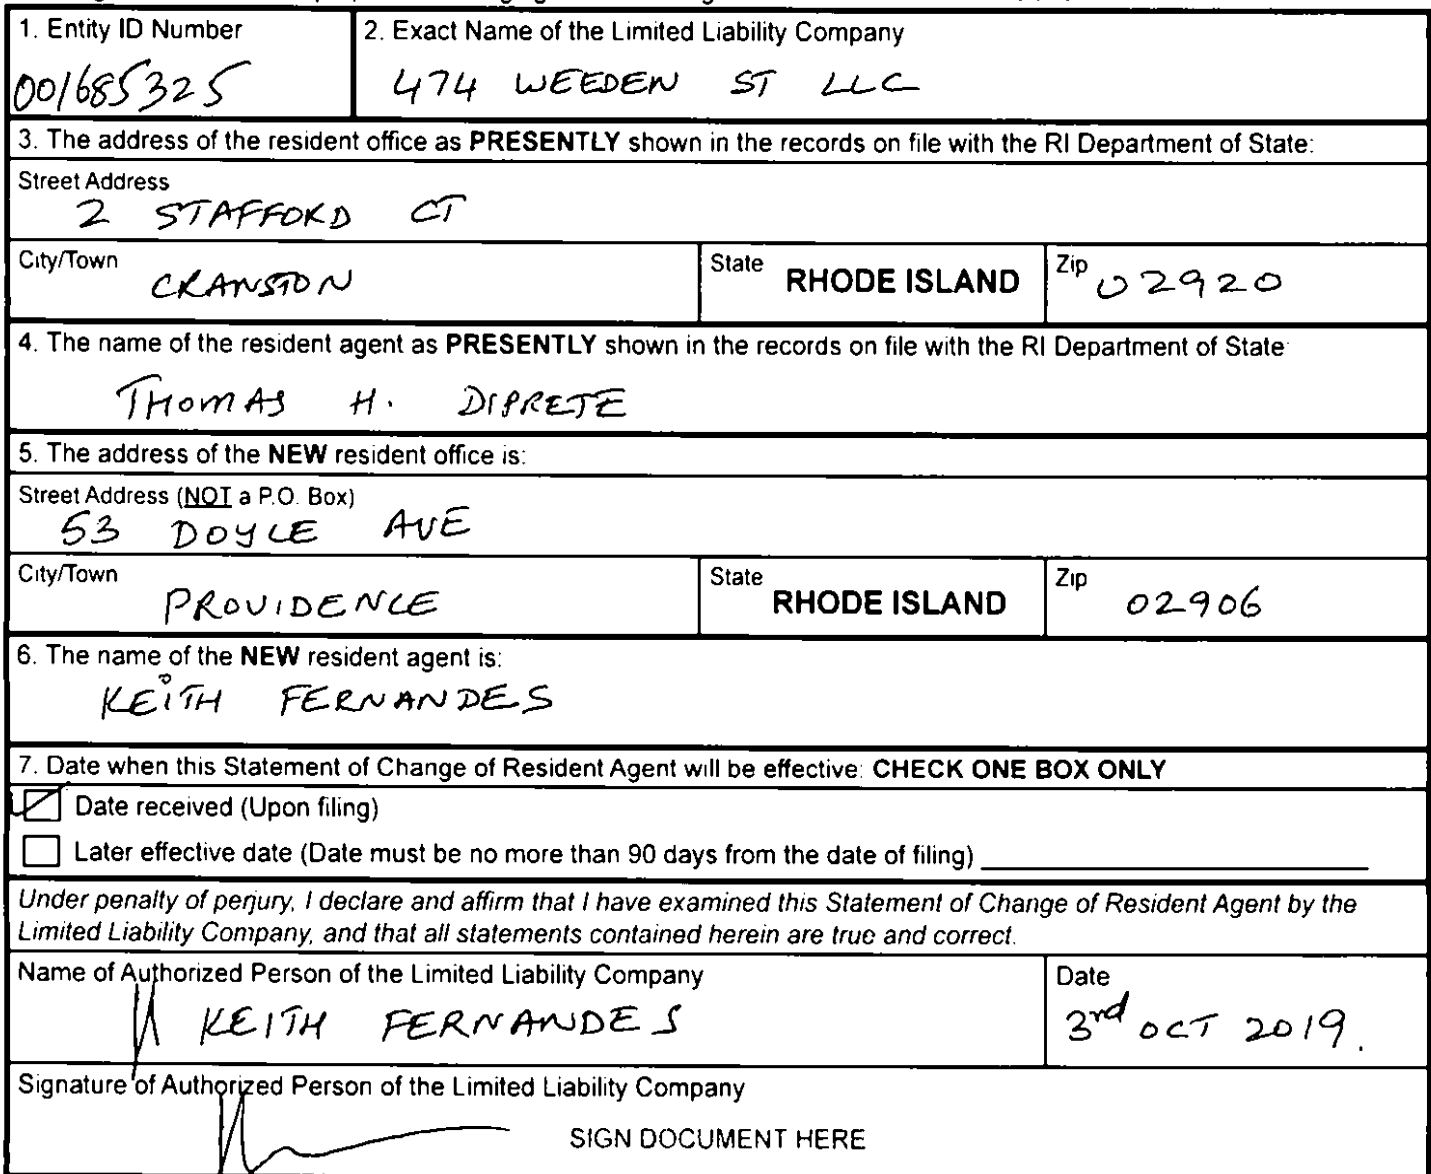 1. Entity ID Number
001685325
2. Exact Name of the Limited Liability Company
474 WEEDEN ST LLC
3. The address of the resident office as PRESENTLY shown in the records on file with the RI Department of State:
Street Address
2 STAFFORD CT
City/Town
CRANSTON
State RHODE ISLAND
Zip 02920
4. The name of the resident agent as PRESENTLY shown in the records on file with the RI Department of State
THOMAS H. DIPRETE
5. The address of the NEW resident office is:
Street Address (NOT a P.O. Box)
53 DOYLE AVE
City/Town
PROVIDENCE
State RHODE ISLAND
Zip 02906
6. The name of the NEW resident agent is:
KEITH FERNANDES
7. Date when this Statement of Change of Resident Agent will be effective: CHECK ONE BOX ONLY
Date received (Upon filing)
Later effective date (Date must be no more than 90 days from the date of filing)
Under penalty of perjury, I declare and affirm that I have examined this Statement of Change of Resident Agent by the
Limited Liability Company, and that all statements contained herein are true and correct.
Name of Authorized Person of the Limited Liability Company
KEITH FERNANDES
Date
3rd OCT 2019.
Signature of Authorized Person of the Limited Liability Company
SIGN DOCUMENT HERE